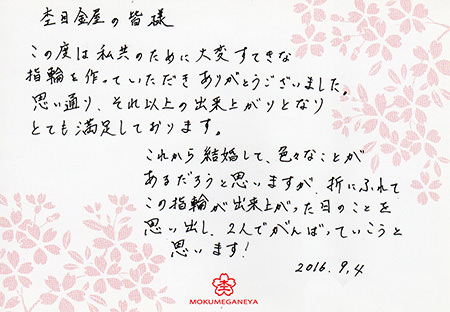 杢目金屋の皆様
この度は私共のために大変すてきな
指輪を作っていただきありがとうございました。
思い通り、それ以上の出来上がりとなり
とても満足しております。
これから結婚して、色々なことが
あるだろうと思いますが、折にふれて
この指輪が出来上がった日のことを
思い出し、2人でがんばっていこうと
思います!
2016.9.4
杢
MOKUMEGANEYA